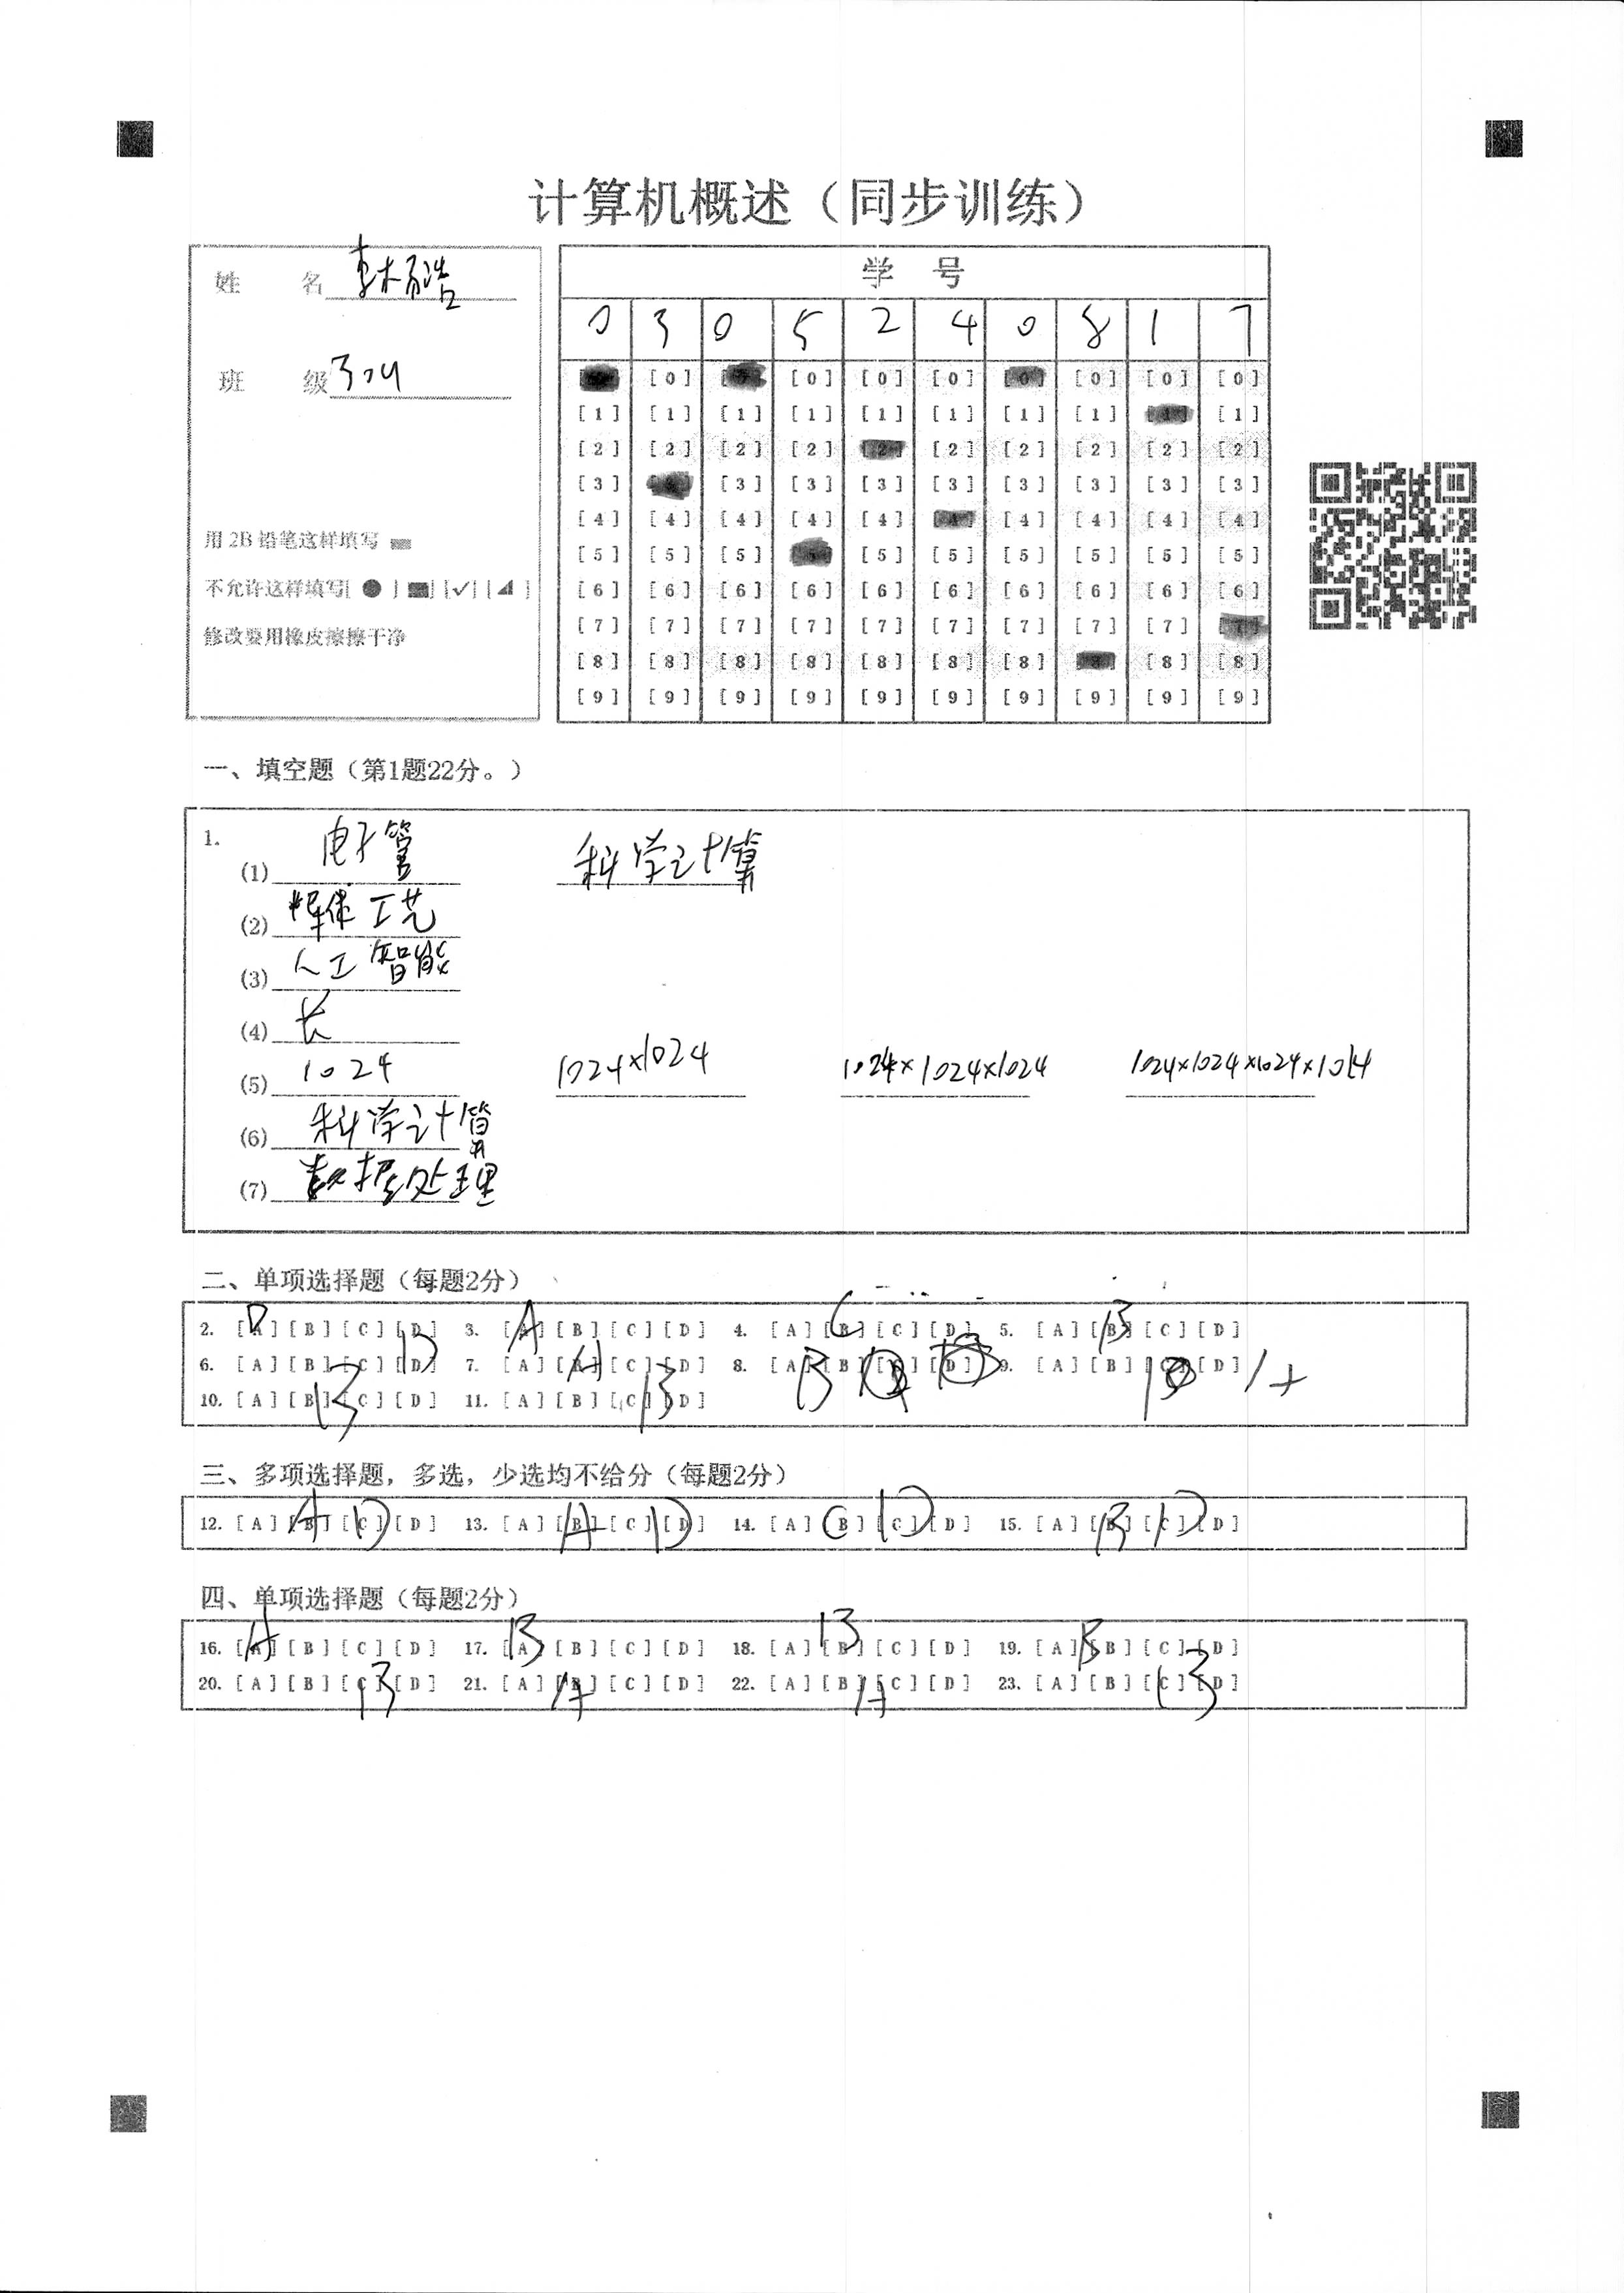 计算机概述（同步训练）
姓 名
班 级 304
用 2B 铅笔这样填写
不允许这样填写[ ● ] [■] [✓] [◢ ]
修改要用橡皮擦擦干净
学 号
0 3 0 5 2 4 0 8 1 7
[0] [0] [0] [0] [0] [0] [0]
[1] [1] [1] [1] [1] [1] [1] [1] [1] [1]
[2] [2] [2] [2] [2] [2] [2] [2] [2] [2]
[3] [3] [3] [3] [3] [3] [3] [3] [3]
[4] [4] [4] [4] [4] [4] [4] [4] [4] [4]
[5] [5] [5] [5] [5] [5] [5] [5] [5]
[6] [6] [6] [6] [6] [6] [6] [6] [6] [6]
[7] [7] [7] [7] [7] [7] [7] [7] [7] [7]
[8] [8] [8] [8] [8] [8] [8] [8] [8] [8]
[9] [9] [9] [9] [9] [9] [9] [9] [9] [9]
一、填空题（第1题22分。）
1.
(1) 电子管 科学计算
(2) 工艺
(3) 人工智能
(4) 长
(5) 1024 1024×1024 1024×1024×1024 1024×1024×1024×1024
(6) 科学计算
(7) 数据处理
二、单项选择题（每题2分）
2. [A] [B] [C] [D] D 3. [A] [B] [C] [D] A 4. [A] [B] [C] [D] C 5. [A] [B] [C] [D] B
6. [A] [B] [C] [D] D 7. [A] [B] [C] [D] A 8. [A] [B] [C] [D] B 9. [A] [B] [C] [D] A
10. [A] [B] [C] [D] B 11. [A] [B] [C] [D] B
三、多项选择题，多选，少选均不给分（每题2分）
12. [A] [B] [C] [D] A D 13. [A] [B] [C] [D] A D 14. [A] [B] [C] [D] C D 15. [A] [B] [C] [D] B D
四、单项选择题（每题2分）
16. [A] [B] [C] [D] A 17. [A] [B] [C] [D] B 18. [A] [B] [C] [D] B 19. [A] [B] [C] [D] B
20. [A] [B] [C] [D] B 21. [A] [B] [C] [D] A 22. [A] [B] [C] [D] A 23. [A] [B] [C] [D] B